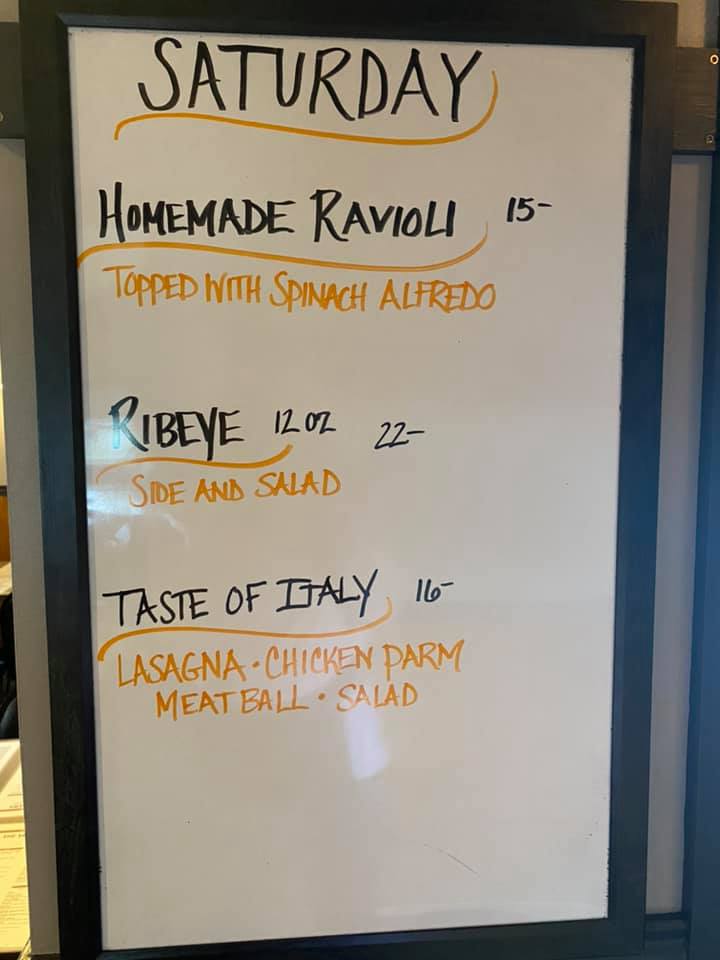 SATURDAY
HOMEMADE RAVIOLI 15-
TOPPED WITH SPINACH ALFREDO
RIBEYE 12 OZ 22-
SIDE AND SALAD
TASTE OF ITALY 16-
LASAGNA · CHICKEN PARM
MEATBALL · SALAD